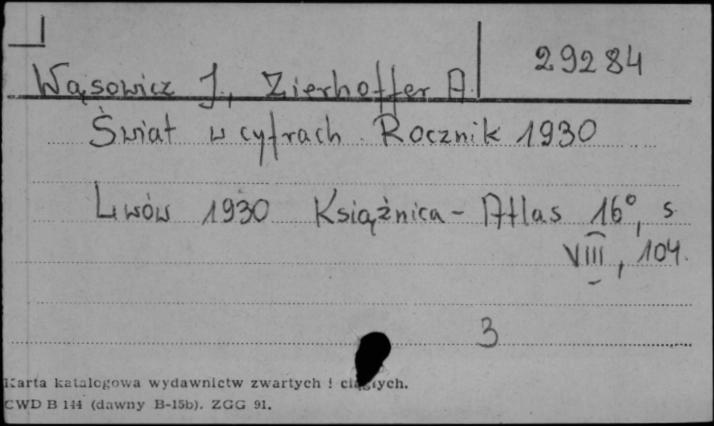 29284
Wąsowicz J., Zierhoffer A.
Świat w cyfrach. Rocznik 1930
Lwów 1930 Książnica - Atlas 16°, s
VIII, 104.
3
Karta katalogowa wydawnictw zwartych i ciągłych.
CWD B 144 (dawny B-15b). ZGG 91.